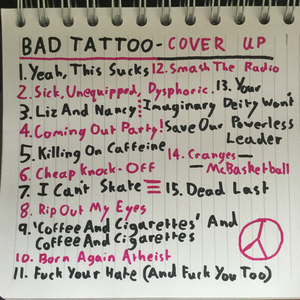 BAD TATTOO - COVER UP
1. Yeah, This Sucks
2. Sick, Unequipped, Dysphoric.
3. Liz And Nancy
4. Coming Out Party!
5. Killing On Caffeine
6. Cheap Knock-Off
7. I Can't Skate
8. Rip Out My Eyes
9. 'Coffee And Cigarettes' And
Coffee And Cigarettes
10. Born Again Atheist
11. Fuck Your Hate (And Fuck You Too)
12. Smash The Radio
13. Your
Imaginary Deity Won't
Save Our Powerless
Leader
14. Cranges —
— McBasketball
15. Dead Last